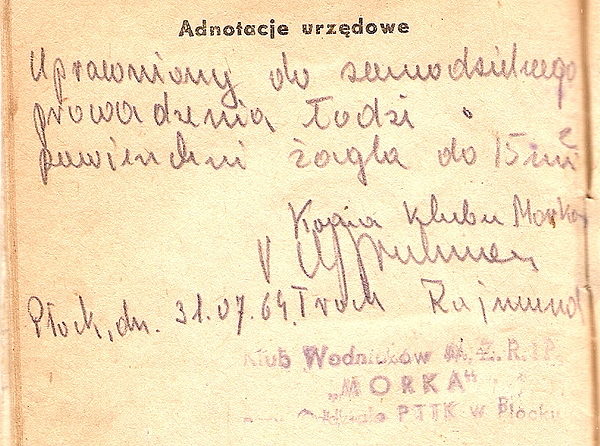 Adnotacje urzędowe
Uprawniony do samodzielnego
prowadzenia łodzi o
powierzchni żagla do 15 m²
klubu Morka
Płock, dn. 31.07.64. Rajmund
Klub Wodniaków M.Z.R.iP.
„MORKA"
Oddziale PTTK w Płocku